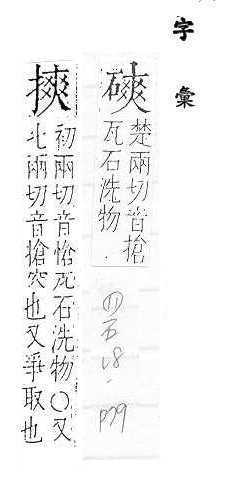 字彙
磢
楚兩切音搶
瓦石洗物
四石18.
摤
初兩切音愴瓦石洗物〇又
北兩切音搶突也又爭取也